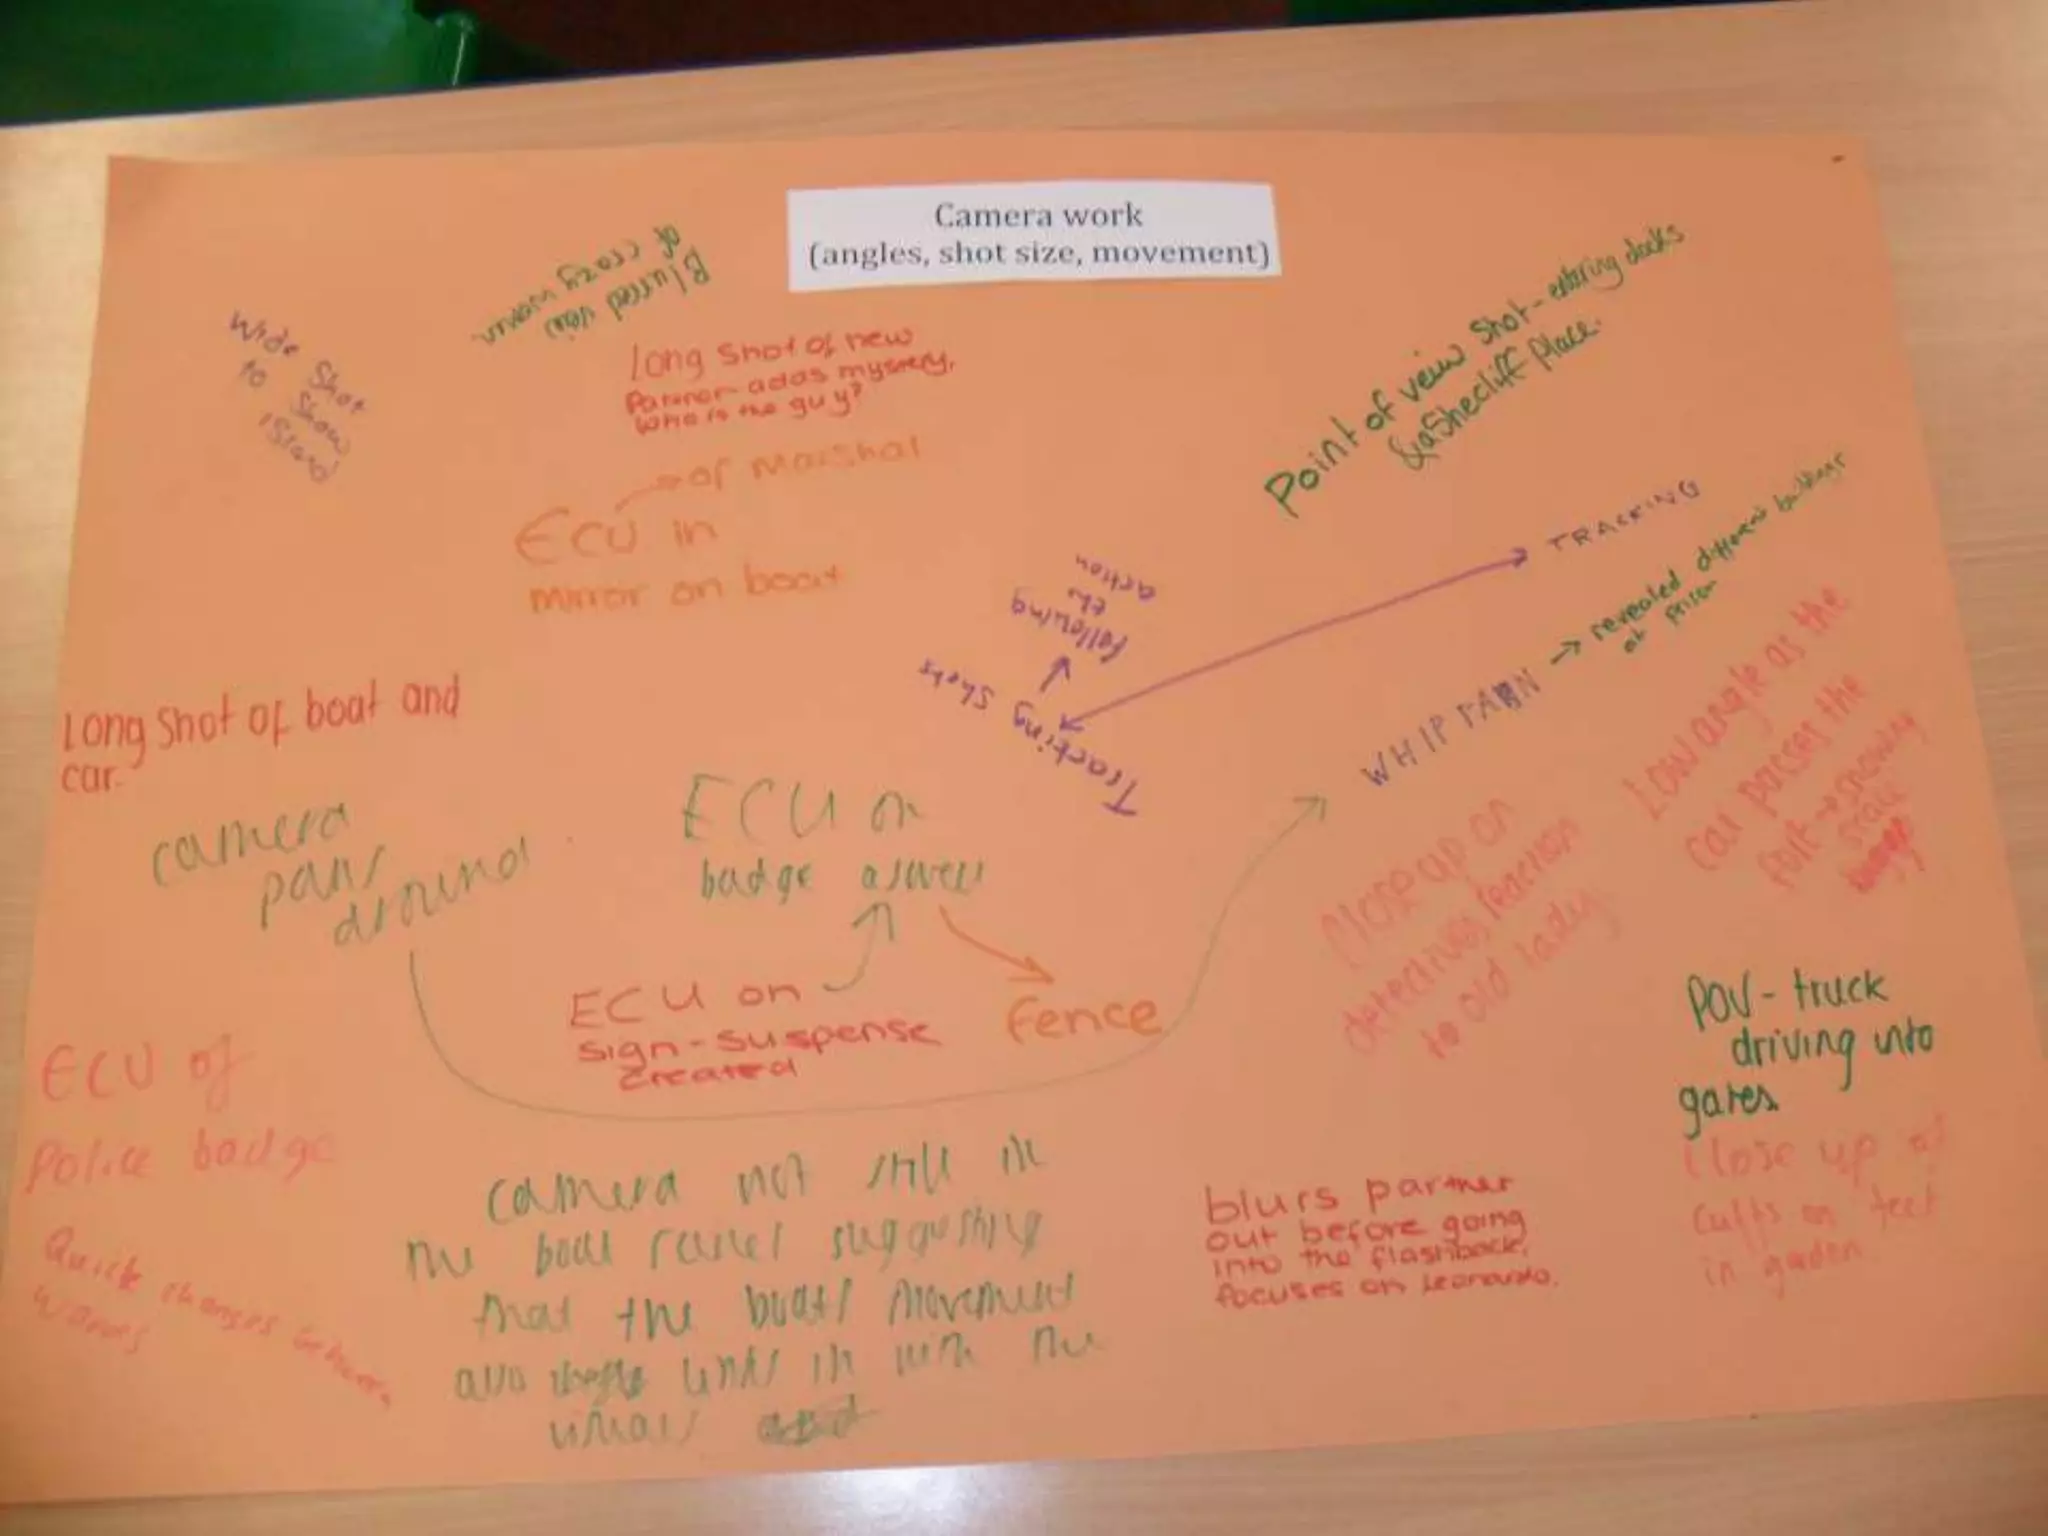 Camera work
(angles, shot size, movement)
Wide Shot
to Show
island
Blurred veiw
of crazy woman
Long Shot of new
Partner adds mystery,
Who is the guy?
ECU in
mirror on boat
of Marshal
Point of veiw Shot - entering docks
& a Shecliff place.
TRACKING
Tracking Shots
following
the
action
WHIP PAN
revealed different buildings
at prison
Low angle as the
car passes the
port → showing
scale
Long Shot of boat and
car.
camera
pans
around
ECU on
badge
Fence
ECU on
sign - suspense
created
Close up on
detectives reaction
to old lady
POV - truck
driving into
gates
Close up of
Cuffs on feet
in garden
ECU of
Police badge
Quick changes between
camera not still in
the boat suggesting
that the boats movement
also links in with the
blurs partner
out before going
into the flashback,
focuses on Leonardo.